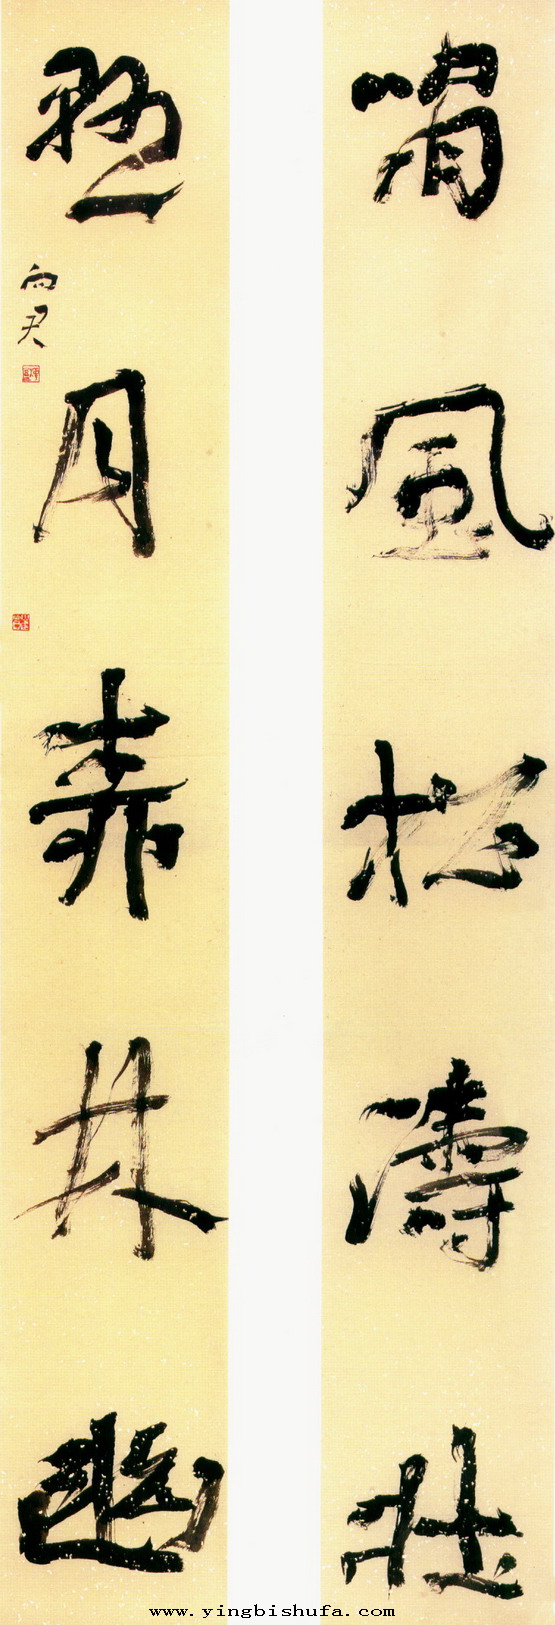 嘯風松濤壯
月森林幽
向君
www.yingbishufa.com